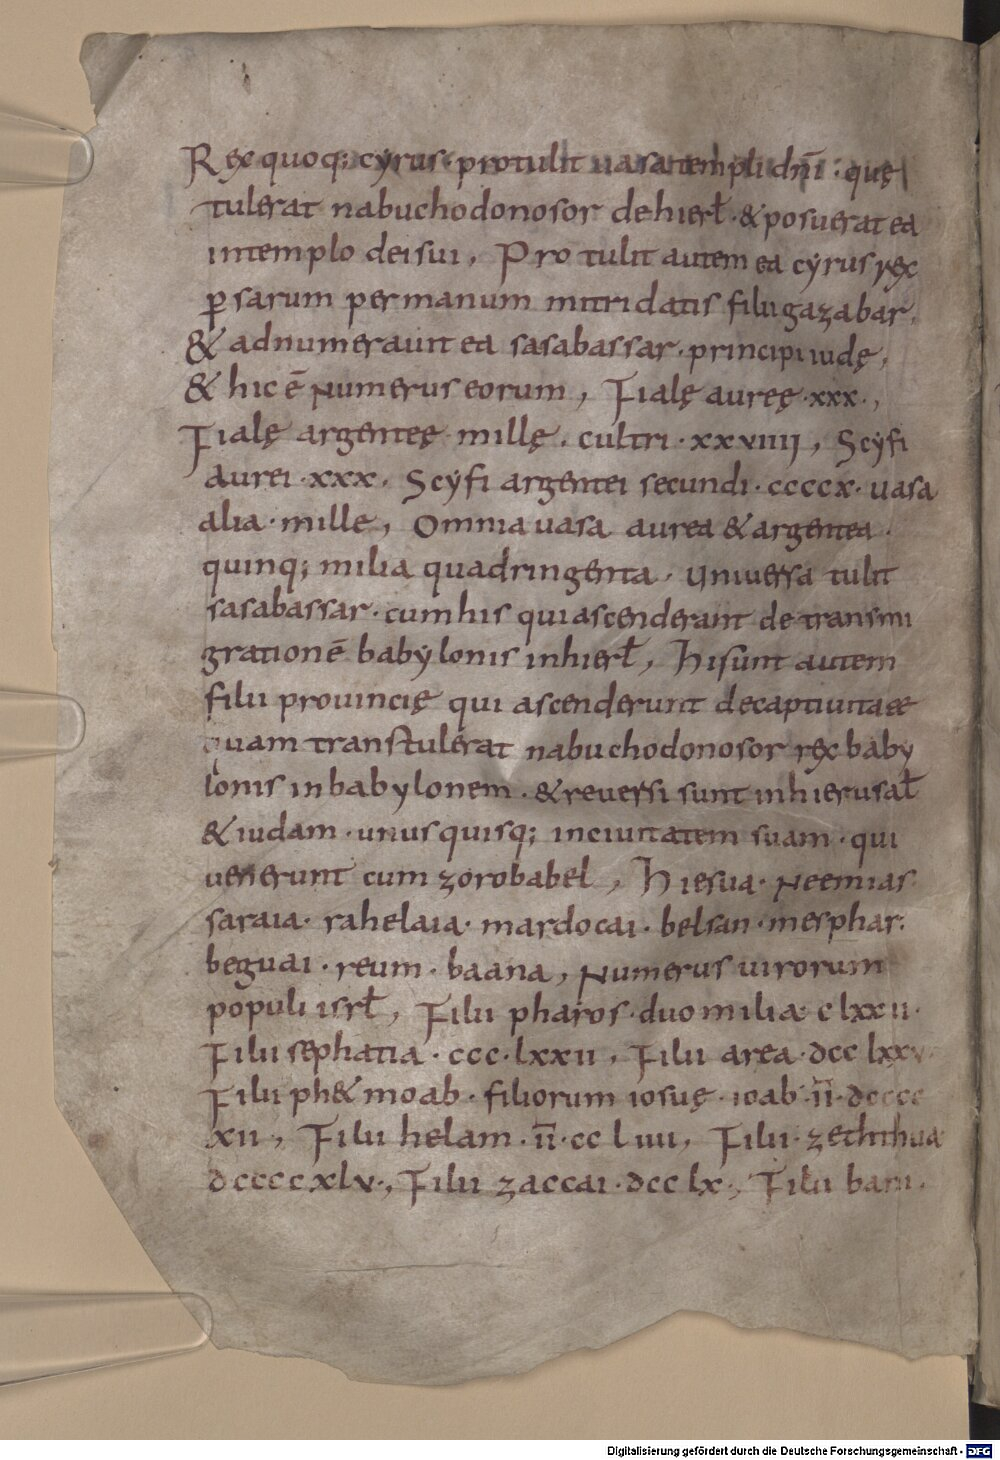 Rex quoq; cyrus · protulit uasa templi dn̄i : quę
tulerat nabuchodonosor de hierł · & posuerat ea
in templo dei sui, Protulit autem ea cyrus rex
ꝑsarum per manum mitridatis filii gazabar,
& adnumerauit ea sasabassar · principi iudę,
& hic ē Numerus eorum, Fialę aureę · xxx ·,
Fialę argenteę · millę · cultri · xxviiii, Scyfi
aurei · xxx · Scyfi argentei secundi · ccccx · uasa
alia · mille, Omnia uasa aurea & argentea ·
quinq; milia quadringenta · Uniuersa tulit
sasabassar · cum his qui ascenderant de transmi
grationē babylonis in hierł, Hi sunt autem
filii prouincię qui ascenderunt de captiuitate
quam transtulerat nabuchodonosor rex baby
lonis in babylonem · & reuersi sunt in hierusał
& iudam · unusquisq; in ciuitatem suam · qui
uenerunt cum zorobabel, Hiesua · Neemias
saraia · rahelaia · mardocai · belsan · mesphar ·
beguai · reum · baana, Numerus uirorum
populi isrł, Filii pharos · duo milia clxxii ·
Filii sephatia · ccc · lxxii, Filii area · dcc lxxv
Filii ph&moab · filiorum iosuę · ioab · īī · dcccc
xii, Filii helam · īī · cc liiii, Filii · zeththua
dccccxlv ·, Filii zaccai · dcc lx ·, Filii bani ·
Digitalisierung gefördert durch die Deutsche Forschungsgemeinschaft - DFG